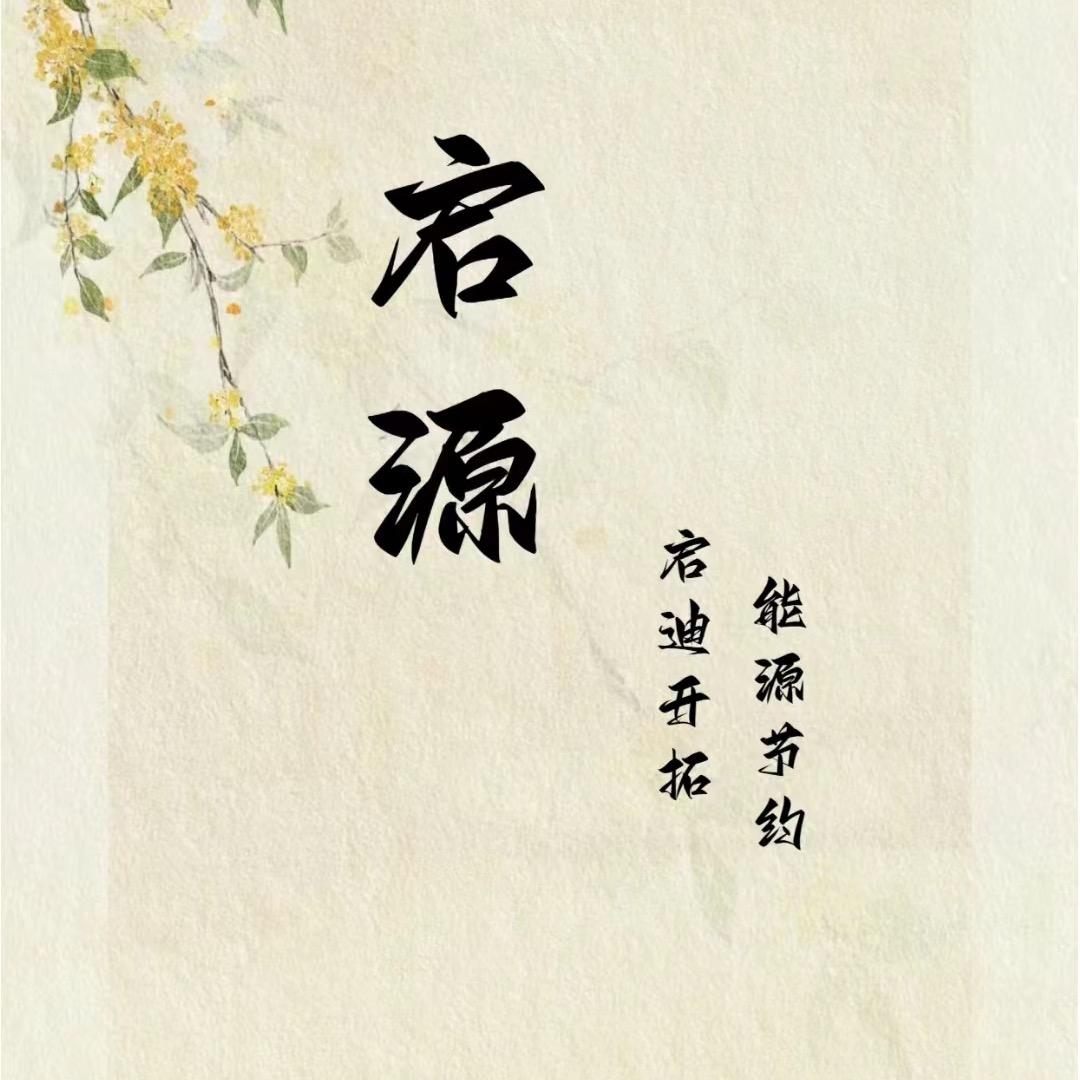 启源
启迪开拓
能源节约